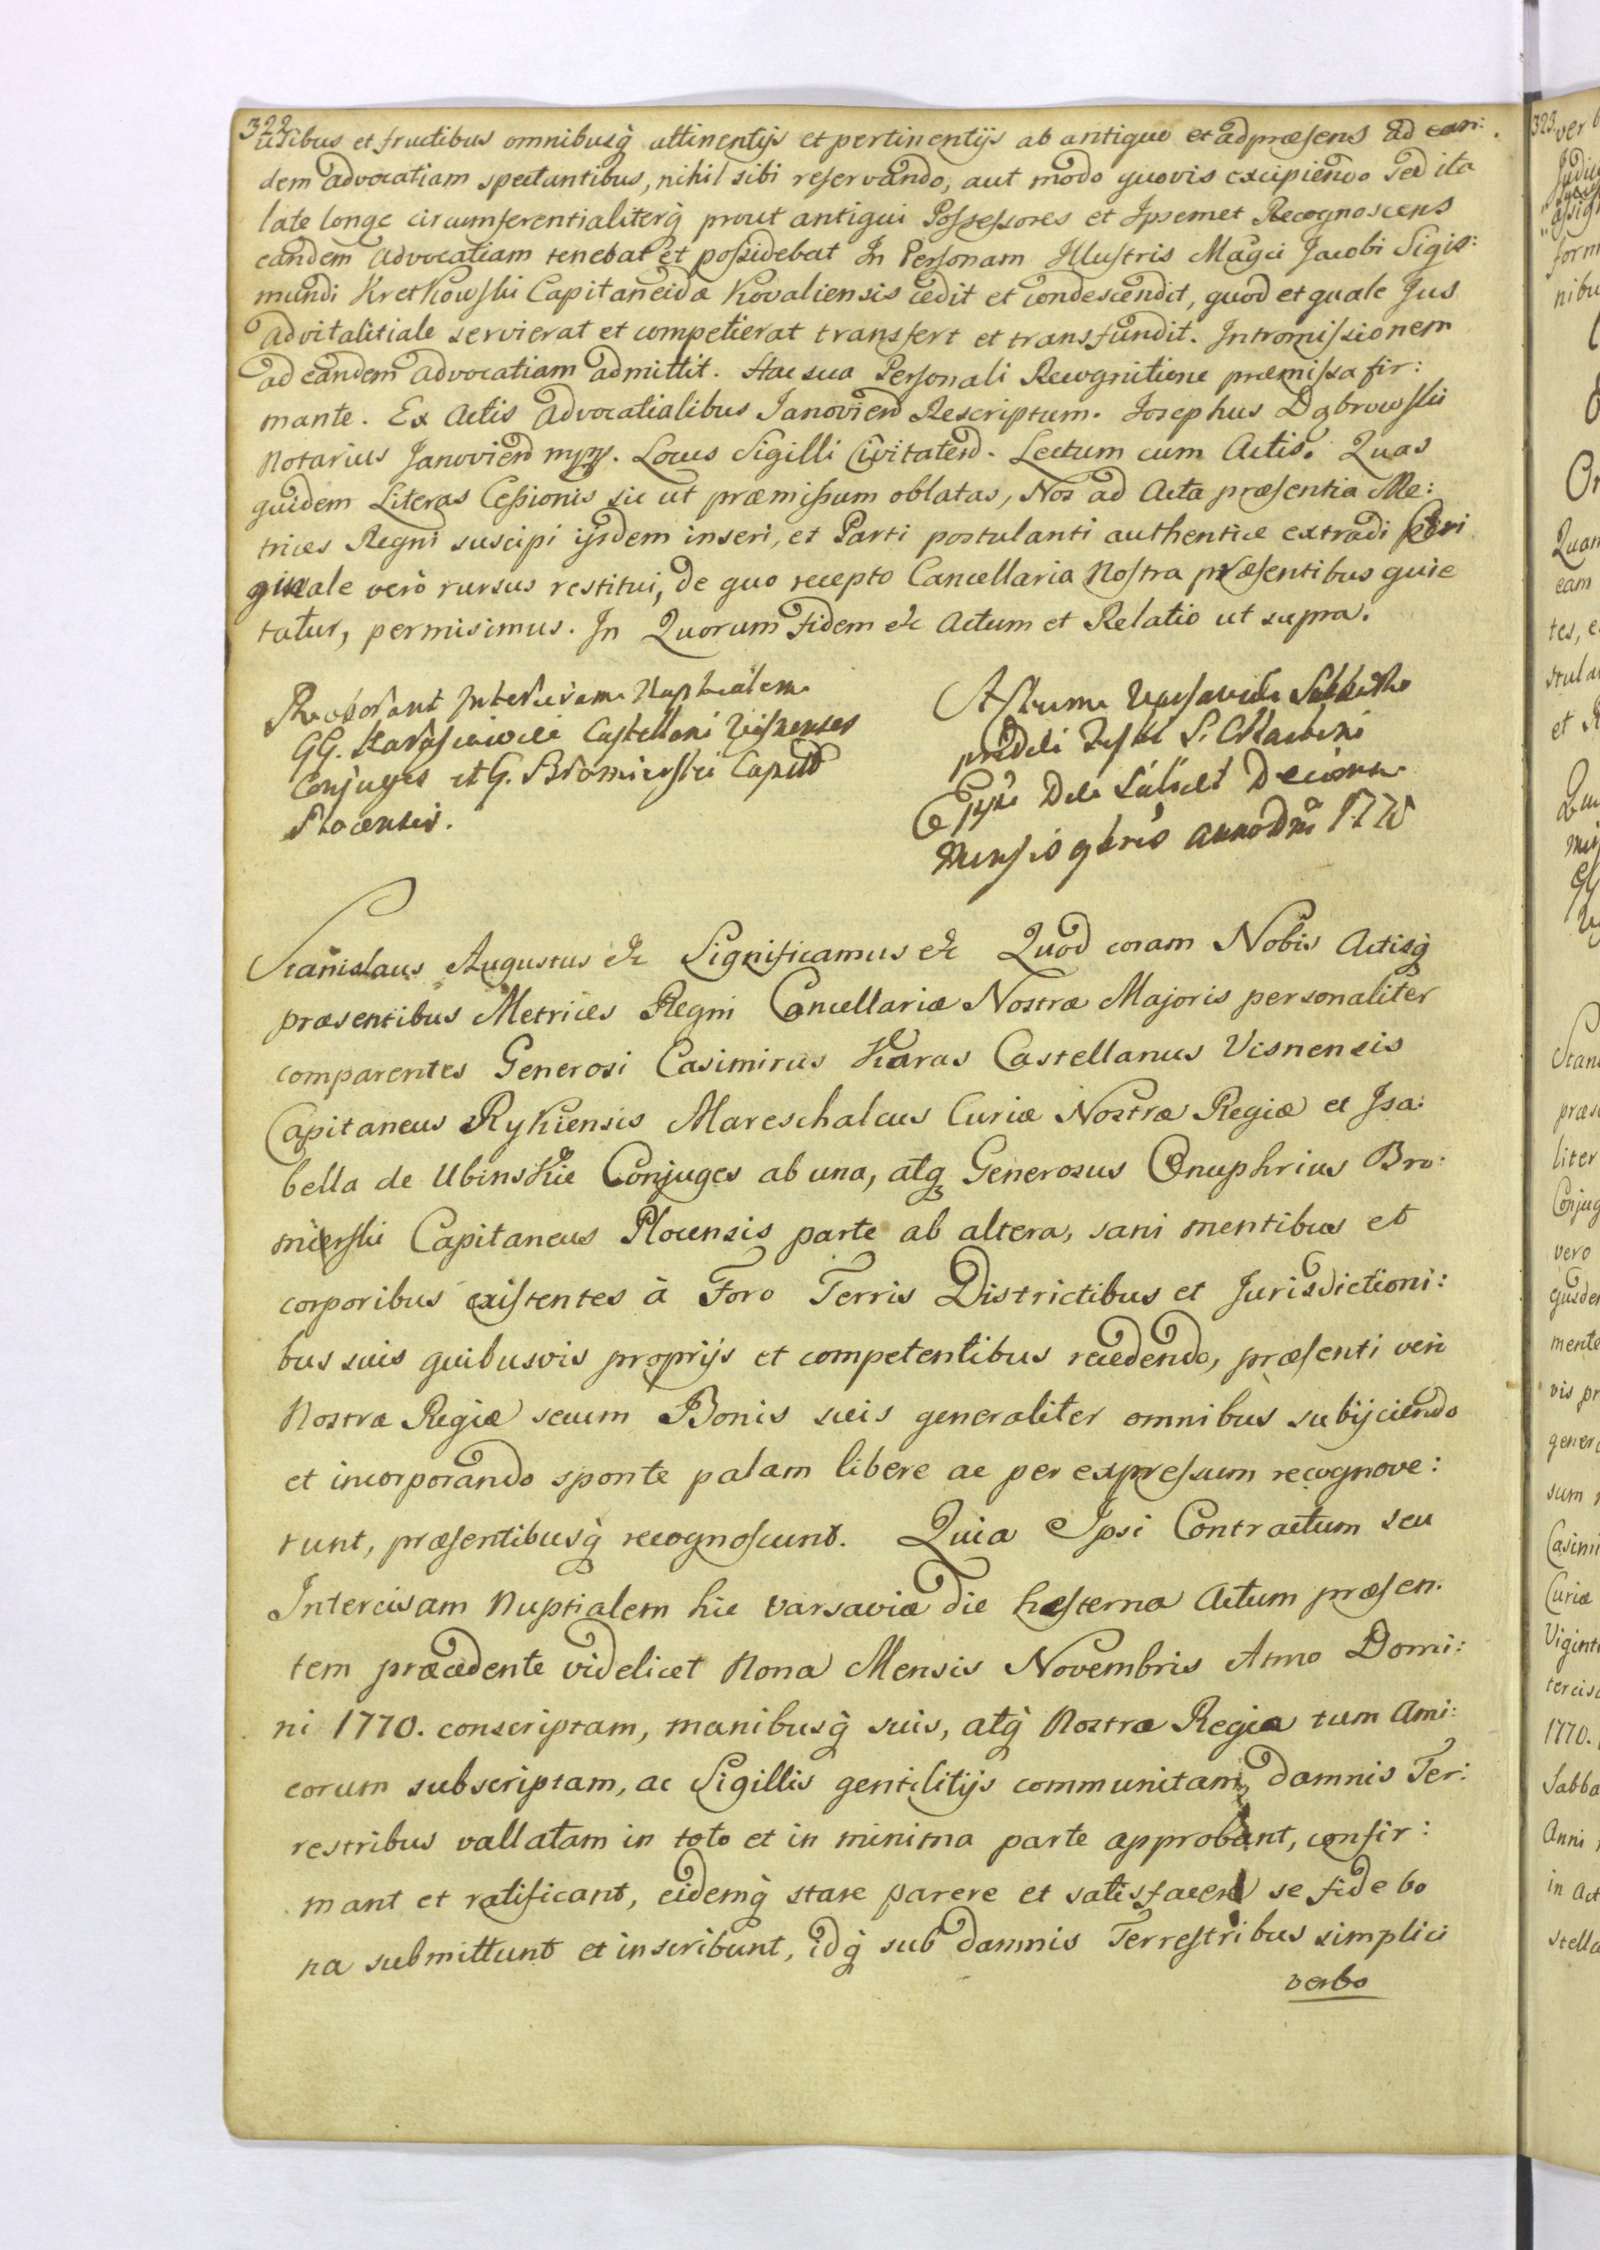 322
usibus et fructibus omnibusq̀ attinentijs et pertinentijs ab antiquo et adpræsens ad ean:
dem advocatiam spectantibus, nihil sibi reservando, aut modo quovis excipiendo sed ita
late longe circumferentialiterq̀ prout antiqui Possessores et Ipsemet Recognoscens
eandem advocatiam tenebat et possidebat In Personam Illustris Magci Jacobi Sigis:
mundi Kretkowski Capitaneidæ Kovaliensis cedit et condescendit, quod et quale Jus
advitalitiale servierat et competierat transfert et transfundit. Intromissionem
ad eandem advocatiam admittit. Hac sua Personali Recognitione præmissa fir:
mante. Ex Actis advocatialibus Janovien Rescriptum. Josephus Dąbrowski
Notarius Janovien mpp. Locus Sigilli Civitaten. Lectum cum Actis. Quas
quidem Literas Cessionis sic ut præmissum oblatas, Nos ad Acta præsentia Me:
trices Regni suscipi ijsdem inseri, et Parti postulanti authentice extradi Ori
ginale verò rursus restitui, de quo recepto Cancellaria Nostra præsentibus quie
tatur, permisimus. In Quorum fidem &c Actum et Relatio ut supra.
Roborant Intercisam Nuptialem
GG. Karasiowie Castellani Visnenses
Conjuges et G. Bromierski Capito
Plocensis.
Actum Varsaviæ Sabbatho
pridie Festi S. Martini
Eppi Die Scilicet Decima
Mensis 9bris Anno Dni 1770
Stanislaus Augustus &c Significamus &c Quod coram Nobis Actisq̀
præsentibus Metrices Regni Cancellariæ Nostræ Majoris personaliter
comparentes Generosi Casimirus Karas Castellanus Visnensis
Capitaneus Rykiensis Mareschalcus Curiæ Nostræ Regiæ et Isa:
bella de Ubinskie Conjuges ab una, atq Generosus Onuphrius Bro:
mierski Capitaneus Plocensis parte ab altera, sani mentibus et
corporibus existentes à Foro Terris Districtibus et Jurisdictioni:
bus suis quibusvis proprijs et competentibus recedendo, præsenti veri
Nostræ Regiæ secum Bonis suis generaliter omnibus subijciendo
et incorporando sponte palam libere ac per expressum recognove:
runt, præsentibusq̀ recognoscunt. Quia Ipsi Contractum seu
Intercisam Nuptialem hic Varsaviæ die hæsterna Actum præsen.
tem præcedente videlicet Nona Mensis Novembris Anno Domi:
ni 1770. conscriptam, manibusq̀ suis, atq̀ Nostra Regia tum Ami:
corum subscriptam, ac Sigillis gentilitijs communitam, damnis Ter:
restribus vallatam in toto et in minima parte approbant, confir:
mant et ratificant, eidemq̀ stare parere et satisfacere se fide bo
na submittunt et inscribunt, idq̀ sub damnis Terrestribus simplici
verbo